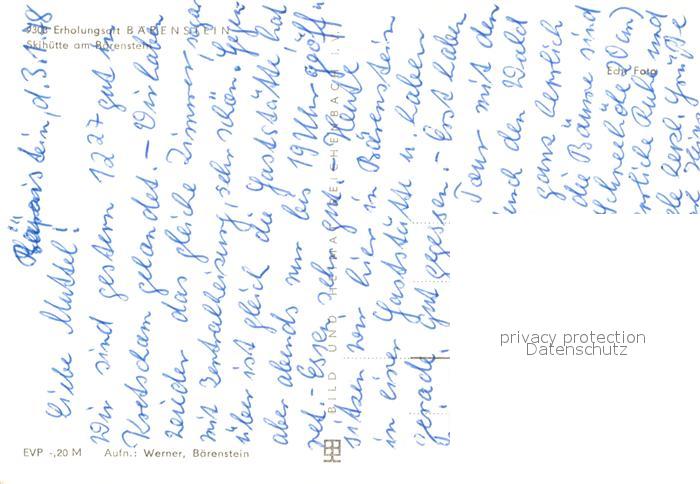 9306 Erholungsort BÄRENSTEIN
Skihütte am Bärenstein
Echt Foto
Bärenstein, d. 3.1.
Liebe Muttel!
Wir sind gestern 12 27 gut in
Kretscham gelandet. – Wir haben
wieder das gleiche Zimmer
mit Zentralheizung, sehr schön.
über ist gleich die Gaststätte, hat
aber abends nur bis 19 Uhr geöff-
net. – Essen sehr gut. – Heute
sitzen wir hier in Bärenstein
in einer Gaststätte u. haben
gerade gut gegessen. – Erst haben
Tour mit den
durch den Wald
ganz herrlich
die Bäume sind
Schneehöhe 70 cm)
Ruhe und
Grüße
BILD UND HEIMAT REICHENBACH I. V.
EVP -,20 M
Aufn.: Werner, Bärenstein
privacy protection
Datenschutz